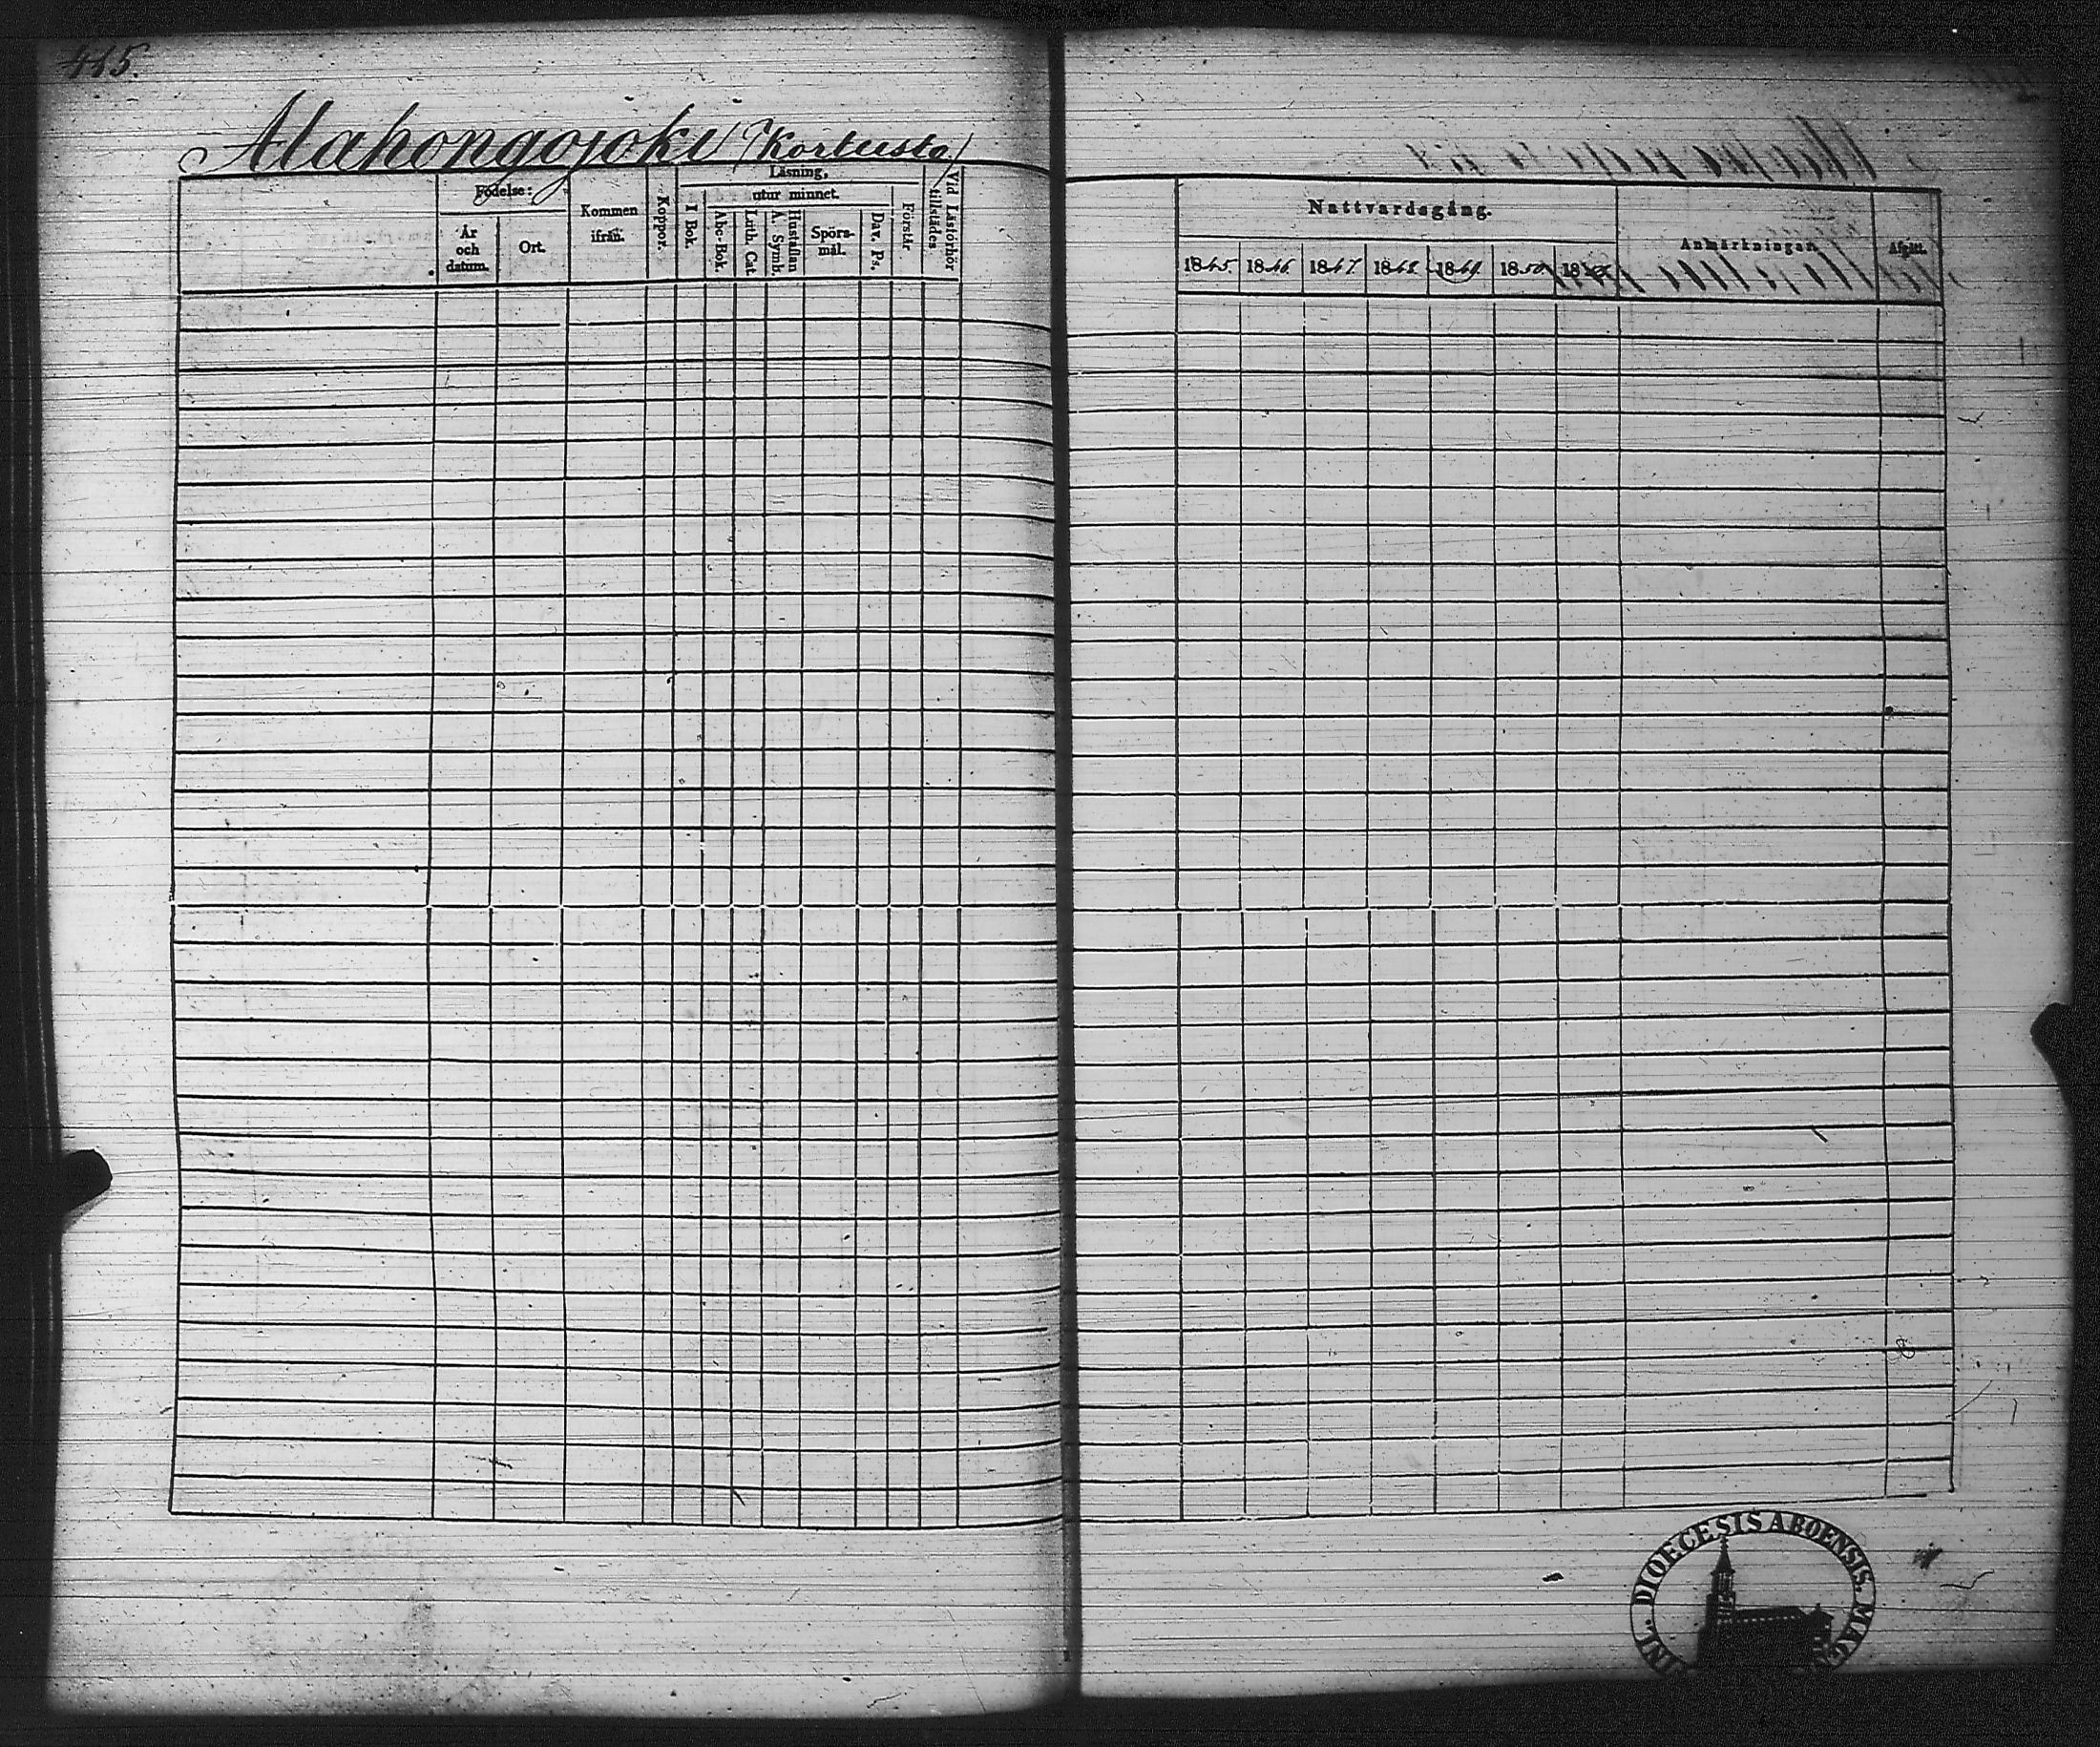 415.
Alahongojoki (Kortusta)
Födelse:
År och datum.
Ort.
Kommen ifrån.
Koppor.
Läsning,
I Bok.
utur minnet.
Abc-Bok.
Luth. Cat.
Hustaflan A. Symb.
Spörs-mål.
Dav. Ps.
Förstår
Vid Läsförhör tillstädes
Nattvardsgång.
1845. 1846. 1847. 1848. 1849. 1850. 18
Anmärkningar.
Afgått.
DIOECESIS ABOENSIS. MAGNI